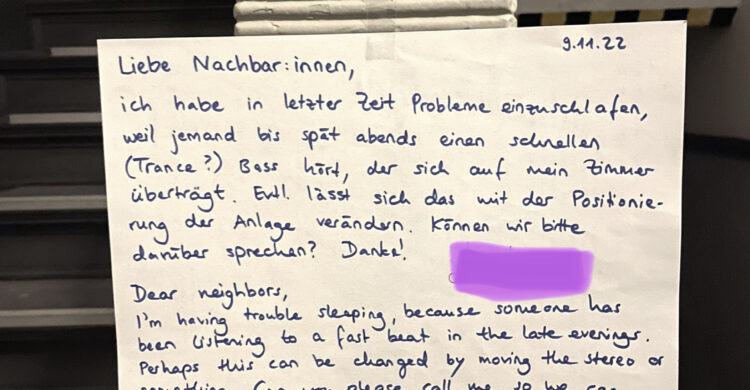 9.11.22
Liebe Nachbar:innen,
ich habe in letzter Zeit Probleme einzuschlafen,
weil jemand bis spät abends einen schnellen
(Trance?) Bass hört, der sich auf mein Zimmer
überträgt. Evtl. lässt sich das mit der Positionie-
rung der Anlage verändern. Können wir bitte
darüber sprechen? Danke!
Dear neighbors,
I'm having trouble sleeping, because someone has
been listening to a fast beat in the late evenings.
Perhaps this can be changed by moving the stereo or